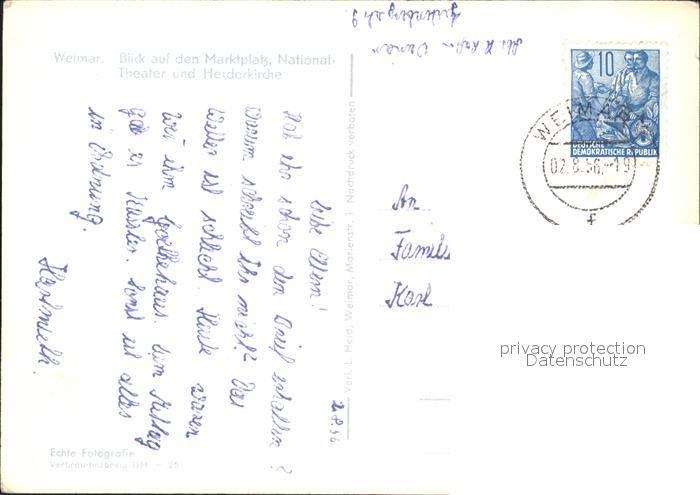 Weimar. Blick auf den Marktplatz, National-
Theater und Herderkirche
10
DEUTSCHE
DEMOKRATISCHE REPUBLIK
WEIMAR
02.8.56.-19
f
Verl. L. Held, Weimar, Marienstr. 1 Nachdruck verboten
2.8.56
Liebe Eltern!
Hat ihr schon den Brief erhalten?
Warum schreibt ihr nicht? Das
Wetter ist schlecht. Heute waren
wir im Goethehaus. Zum Mittag
gab es Sonst ist alles
in Ordnung.
Hartmuth.
An
Famil
Karl
privacy protection
Datenschutz
Echte Fotografie
Verbraucherpreis DM - 25